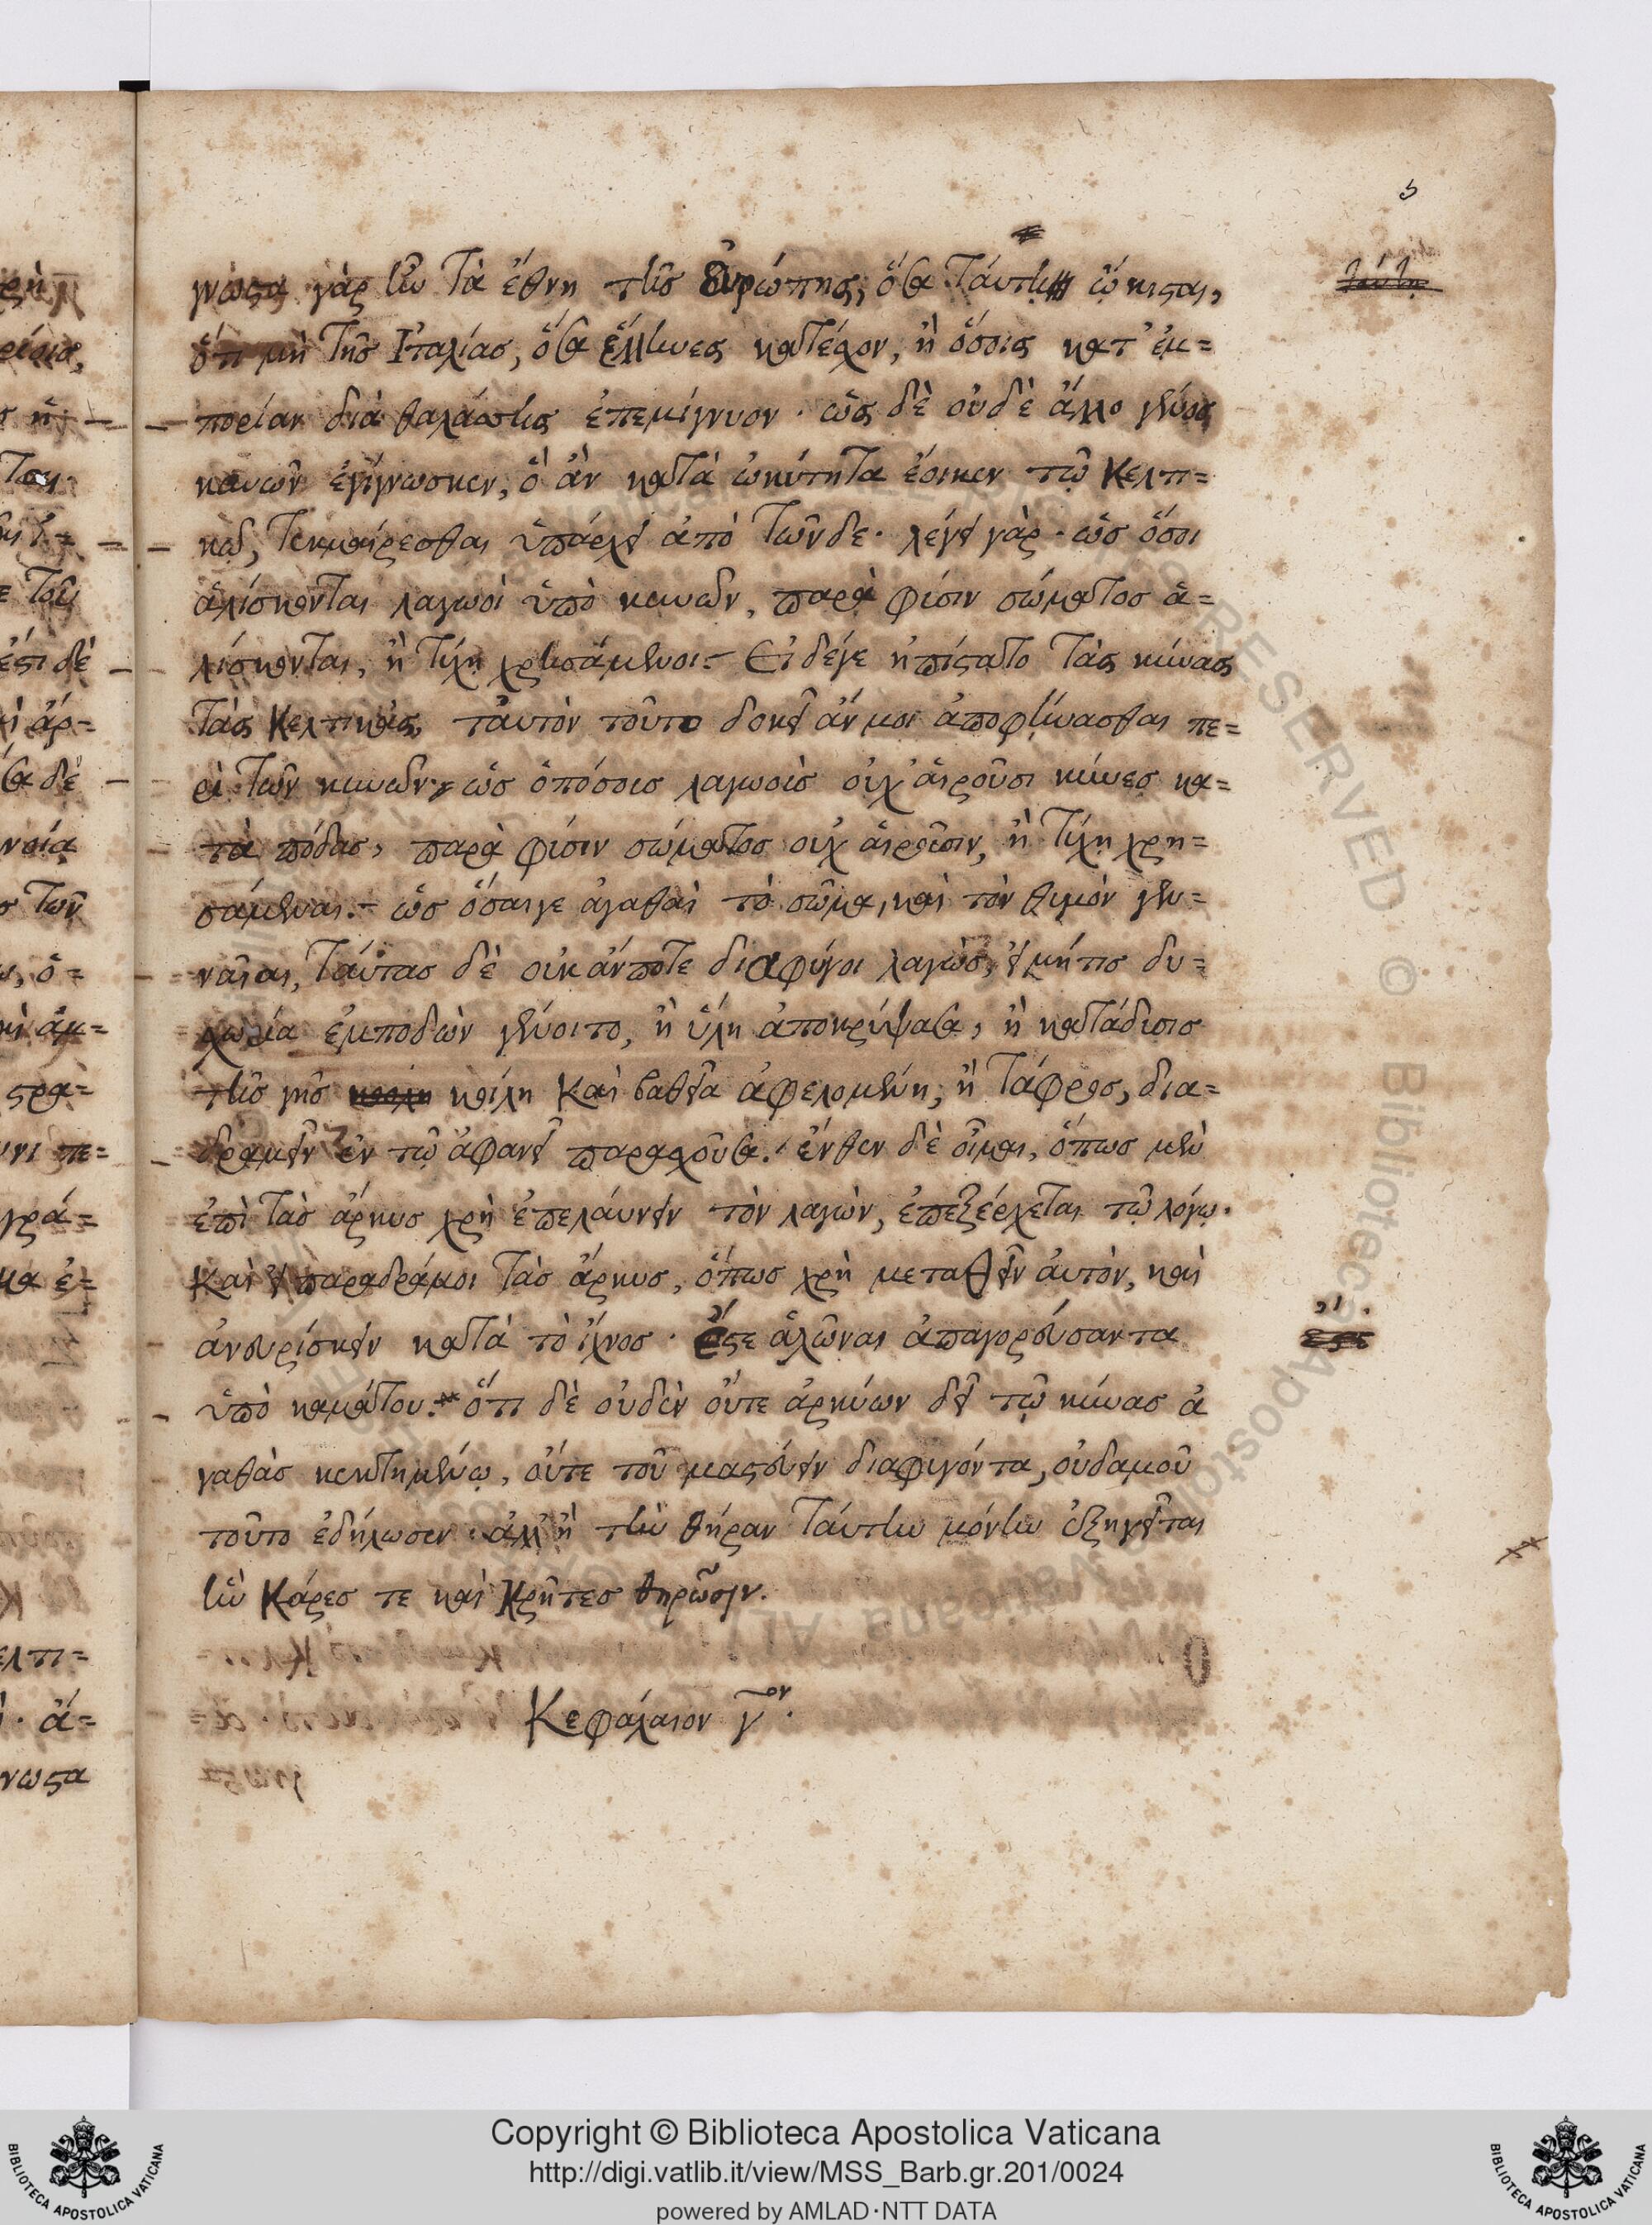 5
γνωϛα γὰρ ἦν τὰ ἔθνη τῆς Εὐρώπης, ὅσα ταύτῃ ᾤκιϛαι,
ὅτι μὴ τῆς Ἰταλίας, ὅσα ἕλληνες κατέχον, ἢ ὅσοις κατ' ἐμ=
πορίαν διὰ θαλάσσης ἐπεμίγνυον · ὡς δὲ οὐδὲ ἄλλο γένος
κυνῶν ἐγίγνωσκεν, ὃ ἂν κατὰ ὠκύτητα ἔοικεν τῷ Κελτι=
κῷ, τεκμαίρεσθαι ὑπάρχει ἀπὸ τῶνδε · λέγει γὰρ · ὡς ὅσοι
ἁλίσκονται λαγωοὶ ὑπὸ κυνῶν, παρὰ φύσιν σώματος ἁ=
λίσκονται, ἢ τύχῃ χρησάμενοι.- Εἰ δέγε ἠπίϛατο τὰς κύνας
τὰς Κελτικὰς, ταὐτὸν τοῦτο δοκεῖ ἄν μοι ἀποφήνασθαι πε=
ρὶ τῶν κυνῶν, ὡς ὁπόσοις λαγωοὶς οὐχ' αἱροῦσι κύνες κα=
τὰ πόδας, παρὰ φύσιν σώματος οὐχ αἱροῦσιν, ἢ τύχῃ χρη=
σάμεναι.- ὡς ὅσαιγε ἀγαθαὶ τὸ σῶμα, καὶ τὸν θυμὸν γεν=
ναῖαι, ταύτας δὲ οὐκ ἄν ποτε διαφύγοι λαγὼς, εἰ μήτις δυ=
χωρία ἐμποδὼν γένοιτο, ἢ ὕλη ἀποκρύψασα, ἢ κατάδυσις
τῆς γῆς κοίλη καὶ βαθεῖα ἀφελομένη, ἢ τάφρος, δια=
δραμεῖν ἐν τῷ ἀφανεῖ παρασχοῦσα. ἔνθεν δὲ οἶμαι, ὅπως μὲν
ἐπὶ τὰς ἄρκυς χρὴ ἐπελάυνειν τὸν λαγὼν, ἐπεξέρχεται τῷ λόγῳ.
Καὶ εἰ παραδράμοι τὰς ἄρκυς, ὅπως χρὴ μεταθεῖν ἀυτὸν, καὶ
ἀνευρίσκειν κατὰ τὸ ἴχνος · ἔϛε ἁλῶναι ἀπαγορεύσαντα
ὑπὸ καμάτου.- ὅτι δὲ οὐδὲν οὔτε ἀρκύων δεῖ τῷ κύνας ἀ
γαθὰς κεκτημένῳ, οὔτε τοῦ μαϛεύειν διαφυγόντα, οὐδαμοῦ
τοῦτο ἐδήλωσεν · ἀλλ' ἢ τὴν θήραν ταύτην μόνην ἐξηγεῖται
ἣν Κάρες τε καὶ Κρῆτες θηρῶσιν.
Κεφάλαιον γον.